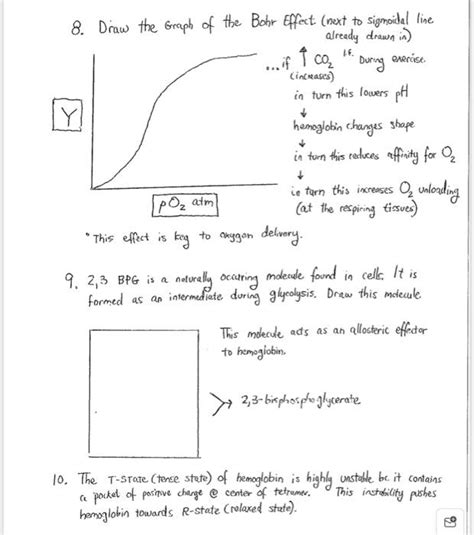 8. Draw the Graph of the Bohr Effect (next to sigmoidal line
already drawn in)
...if ↑ CO2 i.e. During exercise
(increases)
in turn this lowers pH
↓
hemoglobin changes shape
↓
in turn this reduces affinity for O2
↓
in turn this increases O2 unloading
(at the respiring tissues)
Y
pO2 atm
* This effect is key to oxygen delivery.
9. 2,3 BPG is a naturally occurring molecule found in cells. It is
formed as an intermediate during glycolysis. Draw this molecule.
This molecule acts as an allosteric effector
to hemoglobin.
2,3-bisphosphoglycerate
10. The T-state (tense state) of hemoglobin is highly unstable bc it contains
a pocket of positive charge @ center of tetramer. This instability pushes
hemoglobin towards R-state (relaxed state).